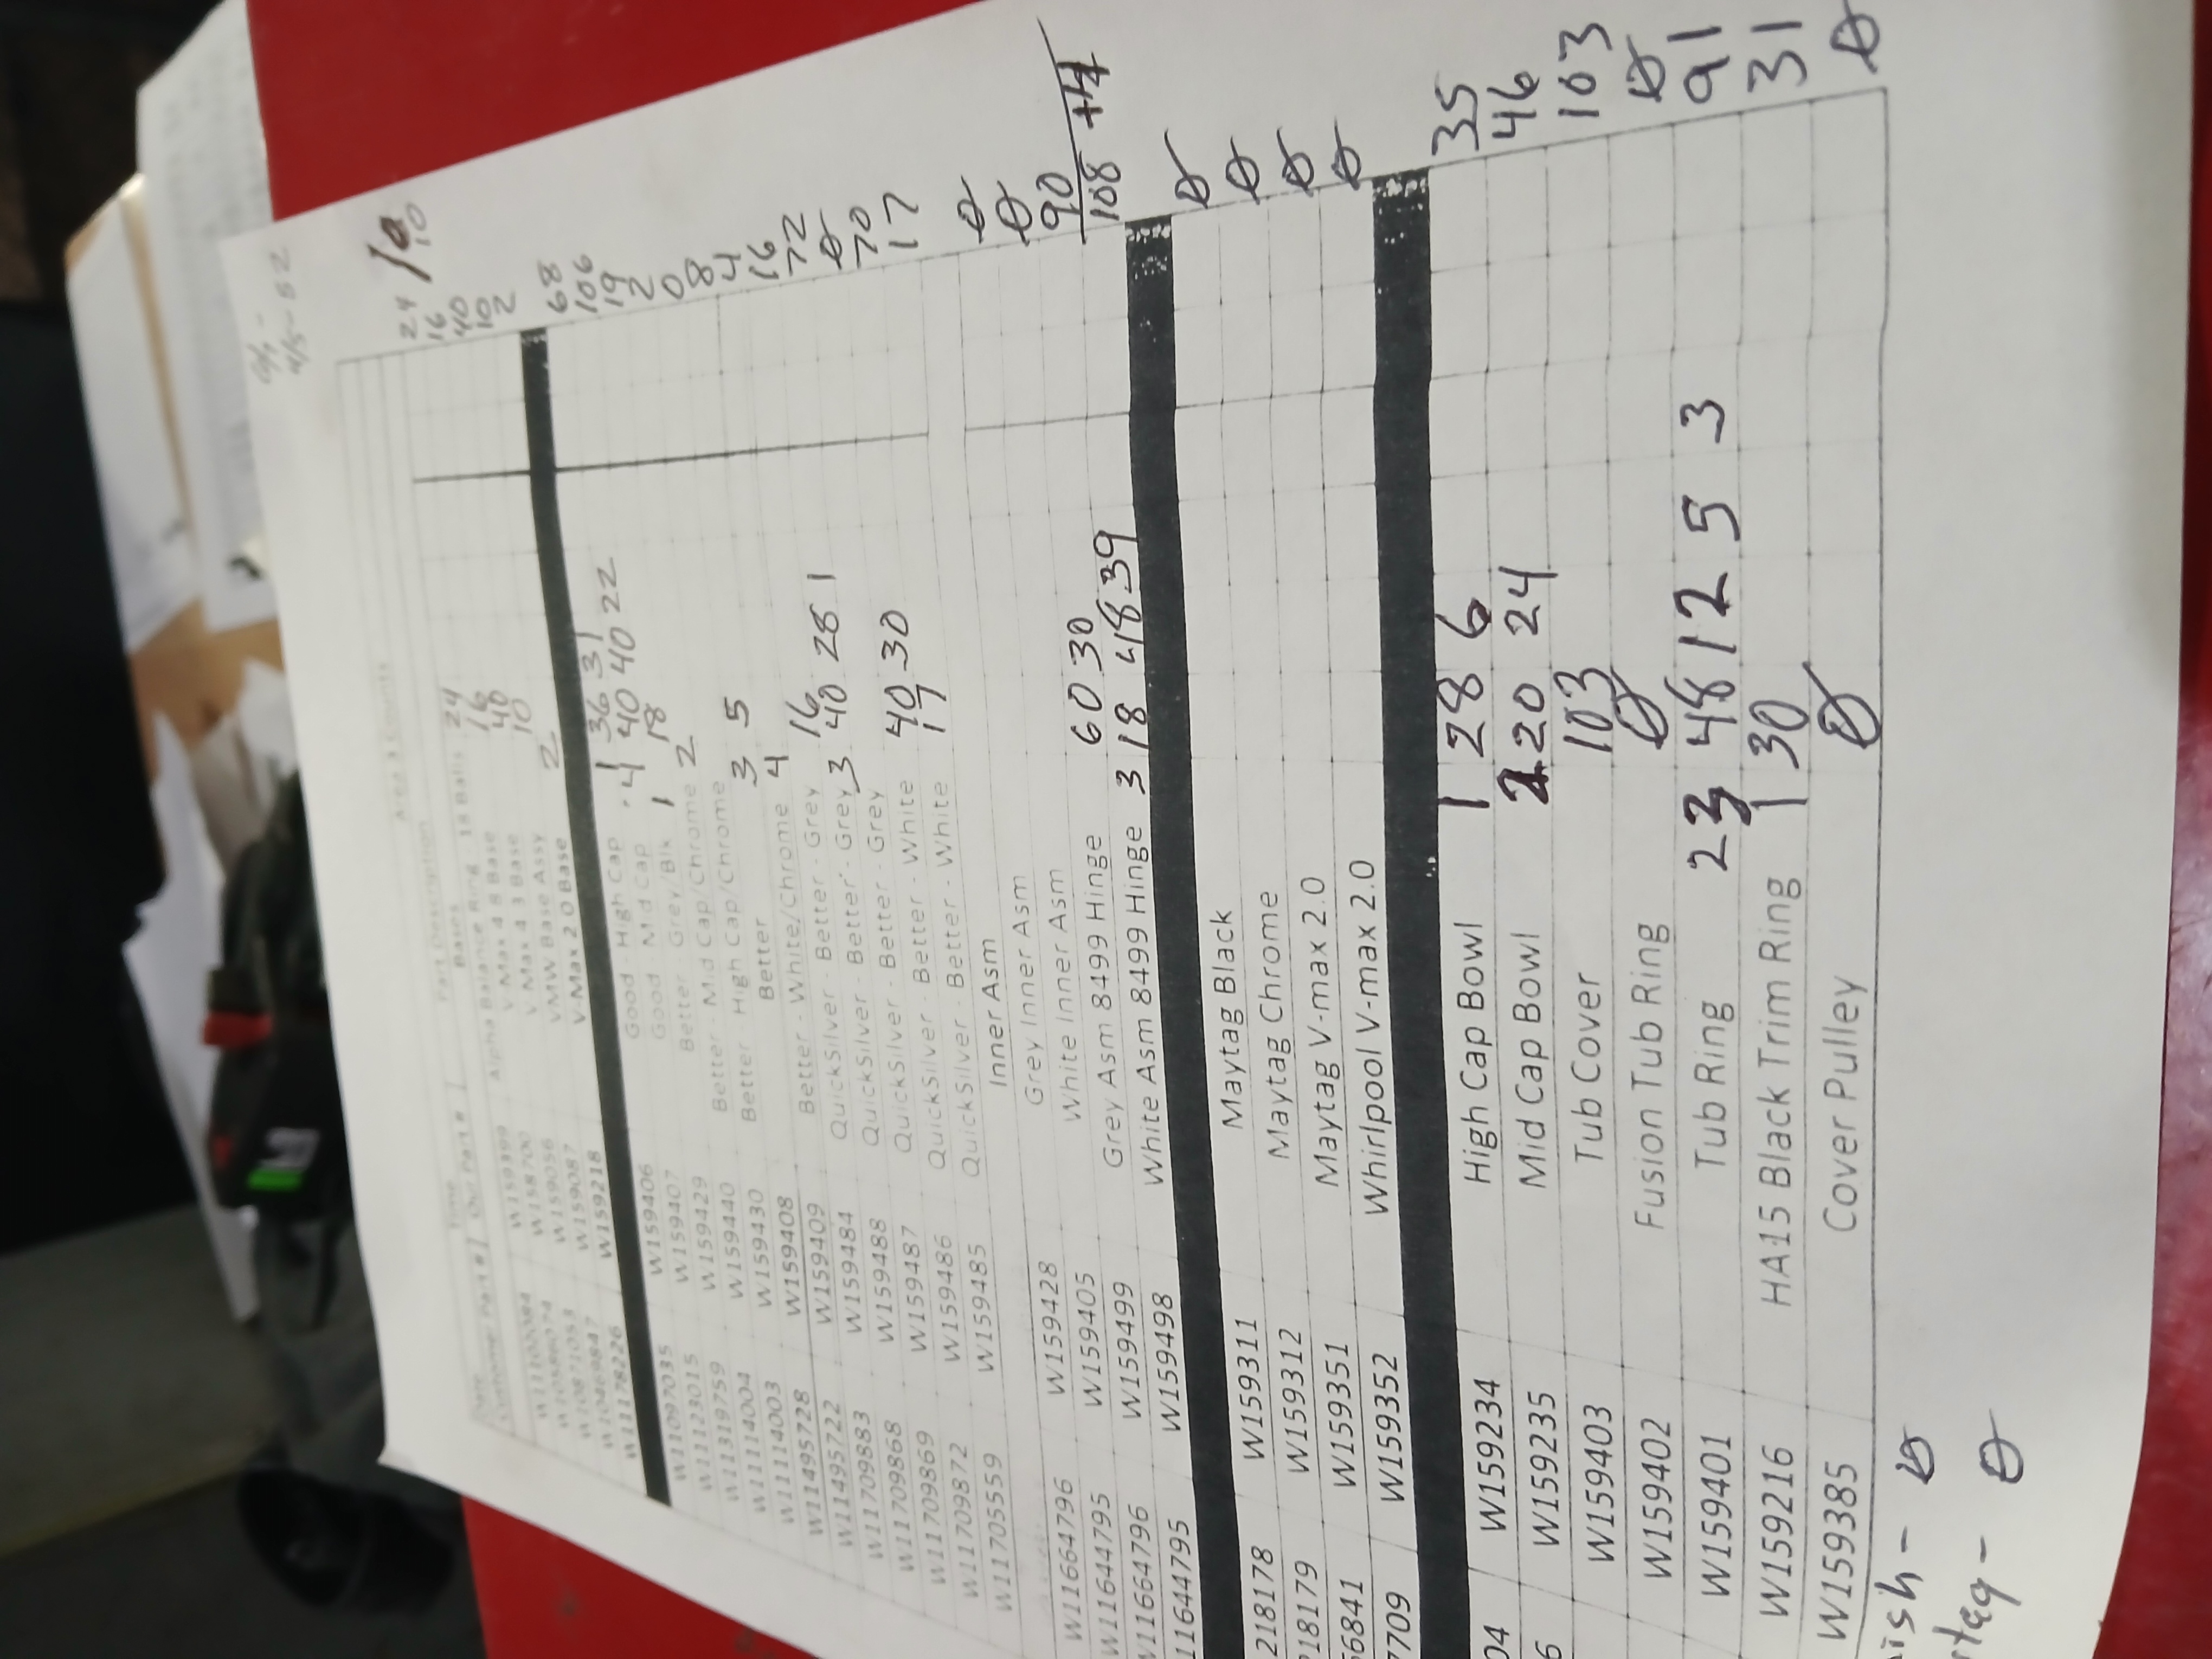 4/5- 52
Area 3 Counts
Part Description
Customer Part # Our Part # Bases
W159399 Alpha Balance Ring 18 Balls 24 24
W158700 V-Max 4.8 Base 16 16
W159056 V-Max 4.3 Base 40 40
W10469847 W159087 VMW Base Assy 10 10
W11178226 W159218 V-Max 2.0 Base 2 2
W11097035 W159406 Good - High Cap 1 36 31 68
W11123015 W159407 Good - Mid Cap 4 40 40 22 106
W11319759 W159429 Better - Grey/Blk 1 18 19
W11114004 W159440 Better - Mid Cap/Chrome 2 2
W11114003 W159430 Better - High Cap/Chrome 0
W11495728 W159408 Better 3 5 8
W11495722 W159409 Better - White/Chrome 4 4
W11709883 W159484 QuickSilver - Better - Grey 16 16
W11709868 W159488 QuickSilver - Better - Grey 3 40 28 1 72
W11709869 W159487 QuickSilver - Better - Grey Ø
W11709872 W159486 QuickSilver - Better - White 40 30 70
W11705559 W159485 QuickSilver - Better - White 17 17
Inner Asm
W11664796 W159428 Grey Inner Asm Ø
W11644795 W159405 White Inner Asm Ø
W11664796 W159499 Grey Asm 8499 Hinge 60 30 90
11644795 W159498 White Asm 8499 Hinge 3 18 48 39 108
218178 W159311 Maytag Black Ø
218179 W159312 Maytag Chrome Ø
6841 W159351 Maytag V-max 2.0 Ø
7709 W159352 Whirlpool V-max 2.0 Ø
04 W159234 High Cap Bowl 1 28 6 35
6 W159235 Mid Cap Bowl 2 20 24 46
W159403 Tub Cover 103 103
W159402 Fusion Tub Ring Ø Ø
W159401 Tub Ring 23 48 12 5 3 91
W159216 HA15 Black Trim Ring 1 30 31
W159385 Cover Pulley Ø Ø
ish - Ø
ytag - Ø